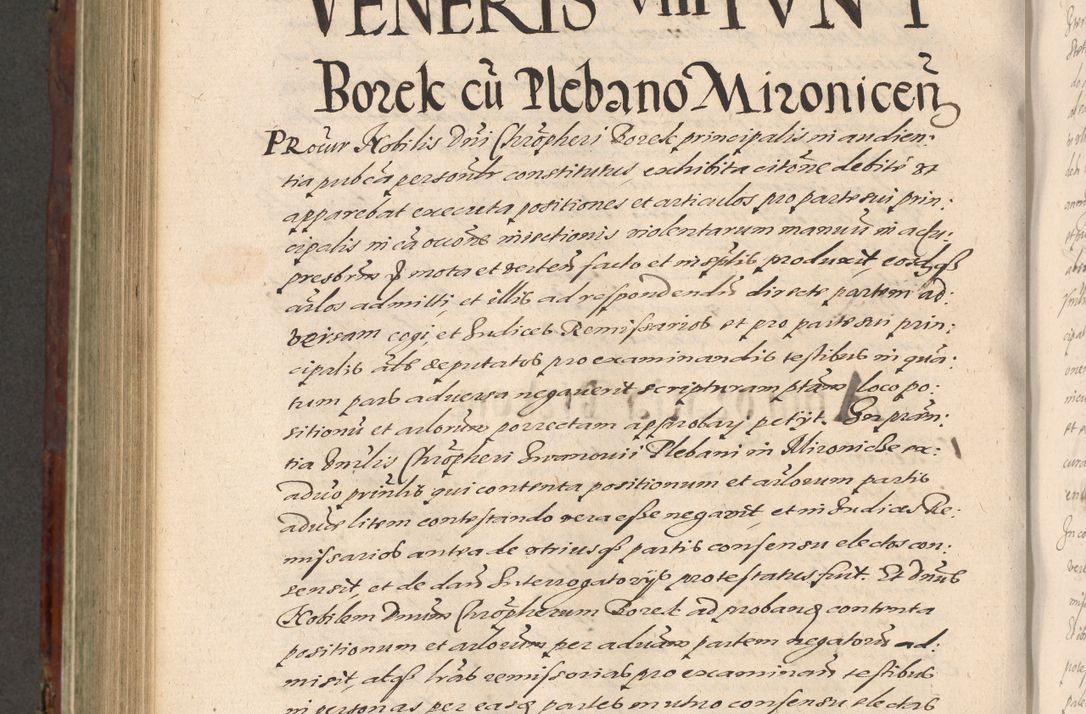 VENERIS VIII IVN I
Borek cū Plebano Mironiceñ
PRocur Nobilis Dñi Chrōpheri Borek principalis in audien:
tia pubca personar constitutus, exhibita citōne debite et
apparebat executa positiones et articulos pro parte sui prin:
cipalis in cā occōne iniectionis violentarum manuū in
presbrm mota et verteñ facto et in sptis produxit, eosdqs
arlos admitti, et illis ad respondendū directe partem ad:
versam cogi, et Iudices Remissarios et pro parte sui prin:
cipalis deputatos pro examinandis testibus in quā:
tum pars adversa negaverit scripturam loco po:
sitionū et arlorum porrectam approbari petijt. In prān:
tia Dnilis Chrōpheri Iwanowii Plebani in Mironicze ex:
adūo prinlis qui contenta positionum et arlorum partis
aduae litem contestando vera esse negavit, et in Iudices Re:
missarios antea de utriusqs partis consensu electos con:
sensit, et de dañ Interrogatorijs protestatus fuit. Et Dnus
Nobilem Dnum Chrōpherum Borek ad probanda contenta
positionum et arlorum per aduam partem negatorū ad:
misit, atqs lras remissorias pro examinañ testibus
in personas per easdē partes mutuo consensu electas